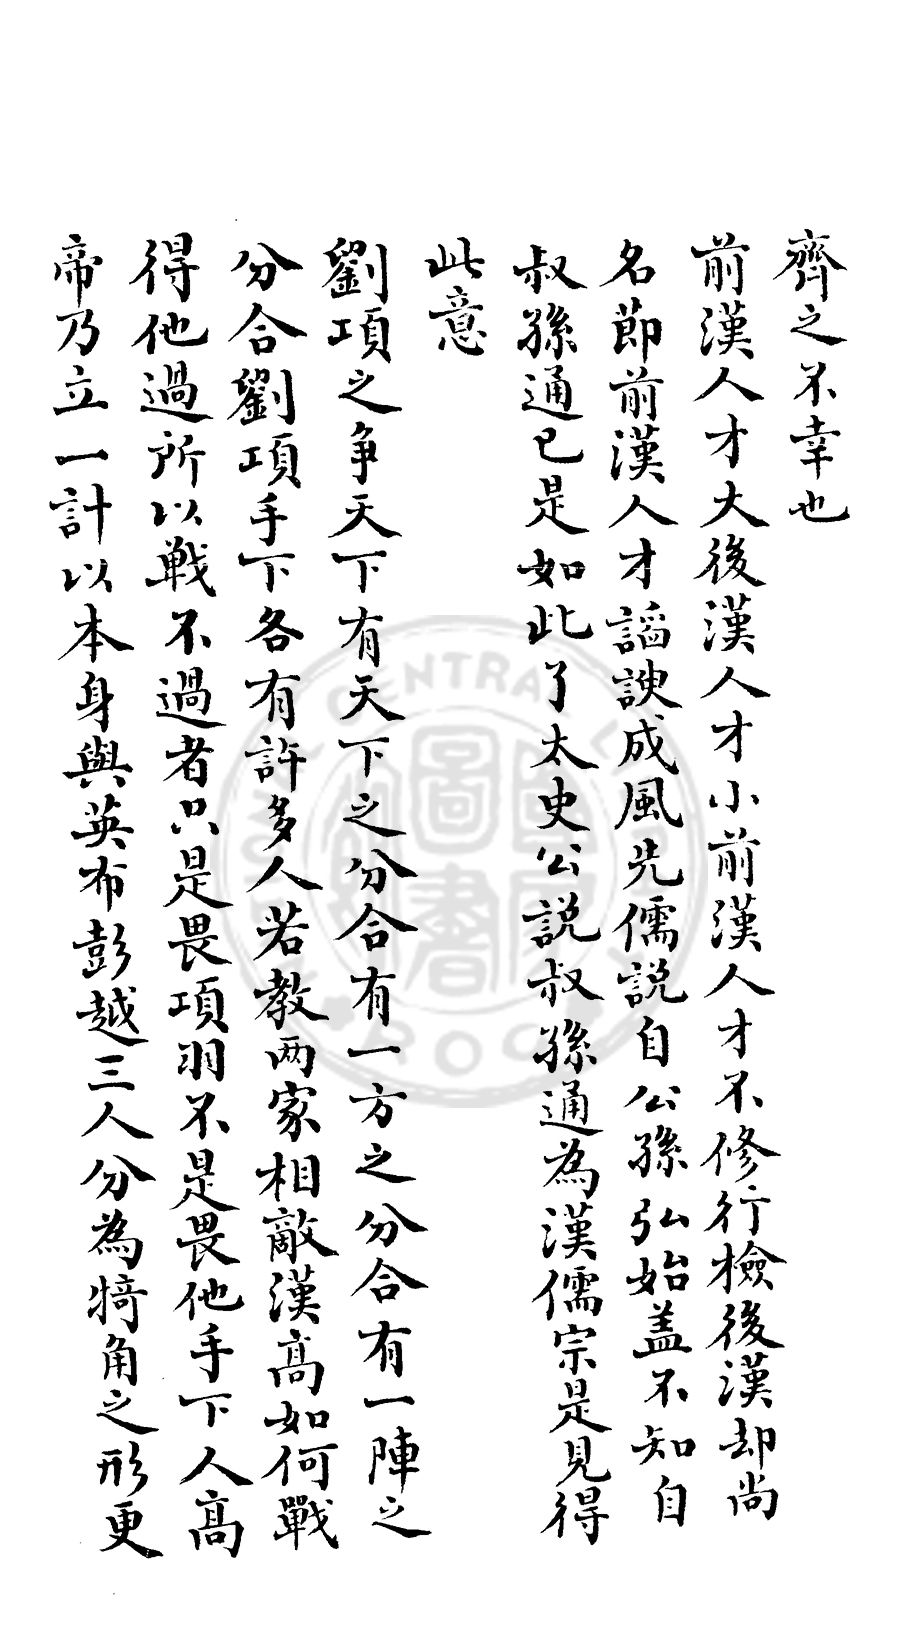 齊之不幸也
前漢人才大後漢人才小前漢人才不修行檢後漢却尚
名節前漢人才謟諛成風先儒説自公孫弘始盖不知自
叔孫通已是如此了太史公説叔孫通為漢儒宗是見得
此意
劉項之争天下有天下之分合有一方之分合有一陣之
分合劉項手下各有許多人若教两家相敵漢髙如何戰
得他過所以戰不過者只是畏項羽不是畏他手下人髙
帝乃立一計以本身與英布彭越三人分為犄角之形更
圖書
CENTRA